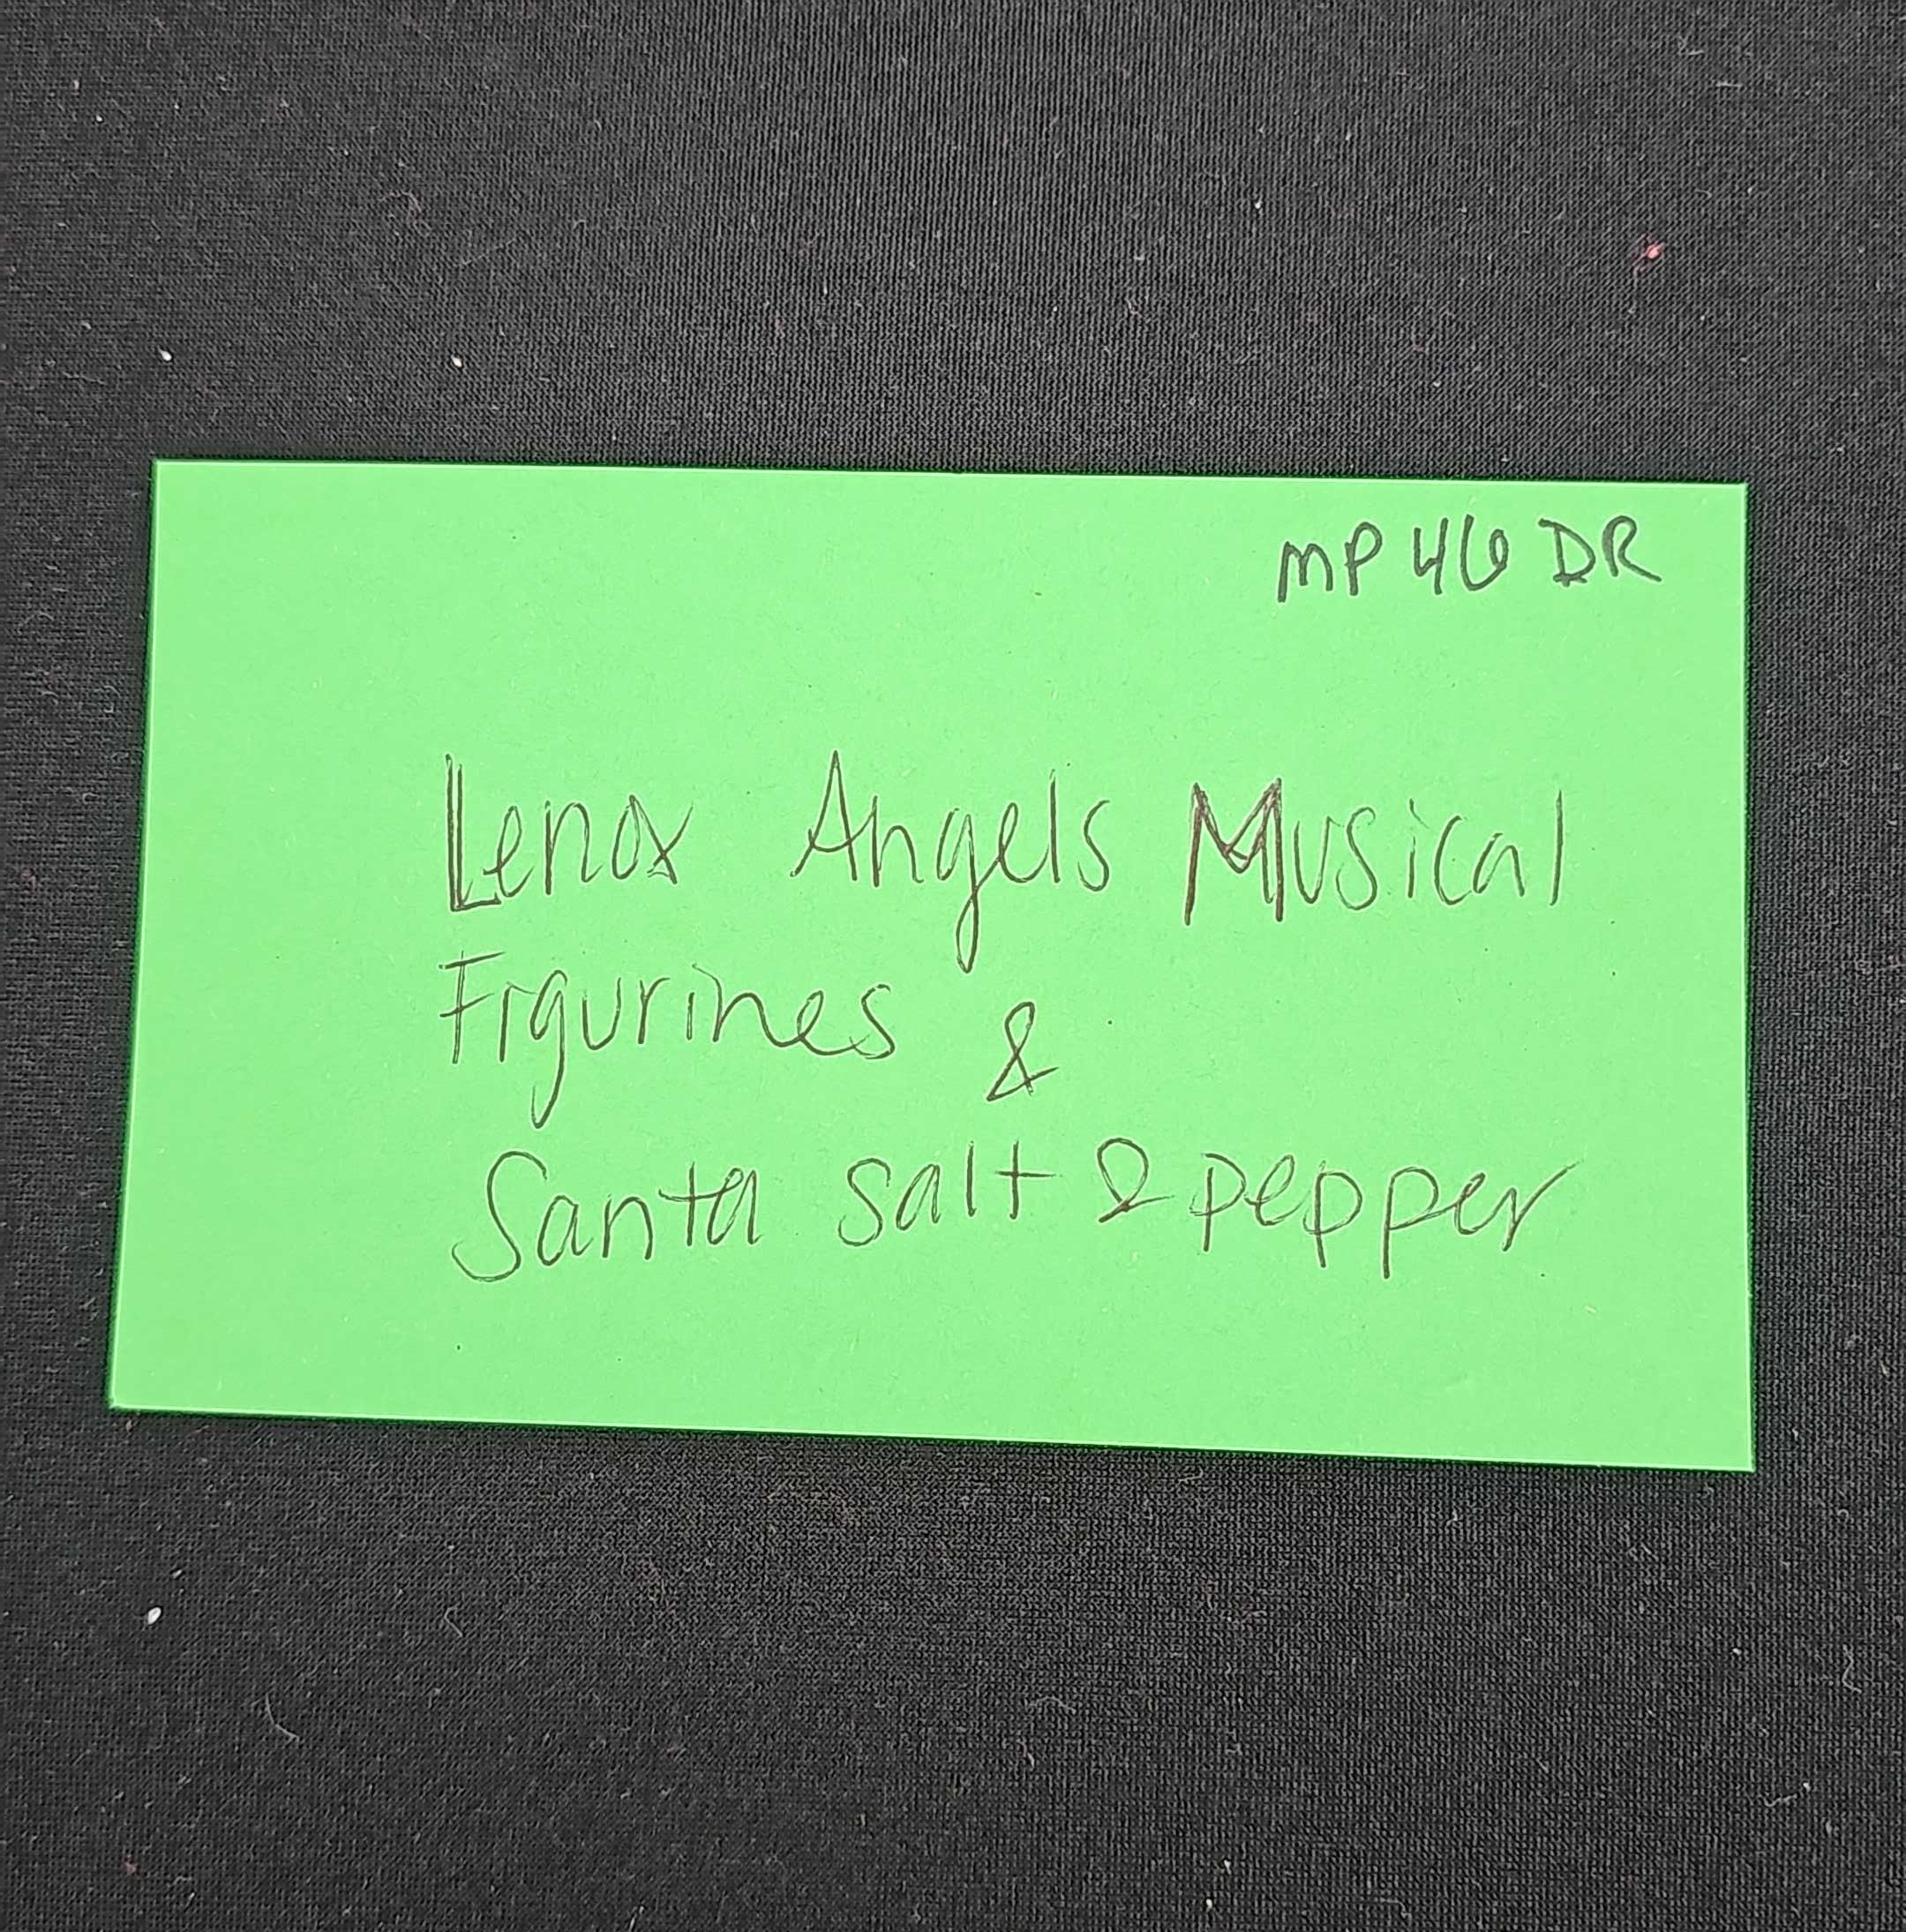 MP 46 DR
Lenox Angels Musical
Figurines &
Santa salt & pepper